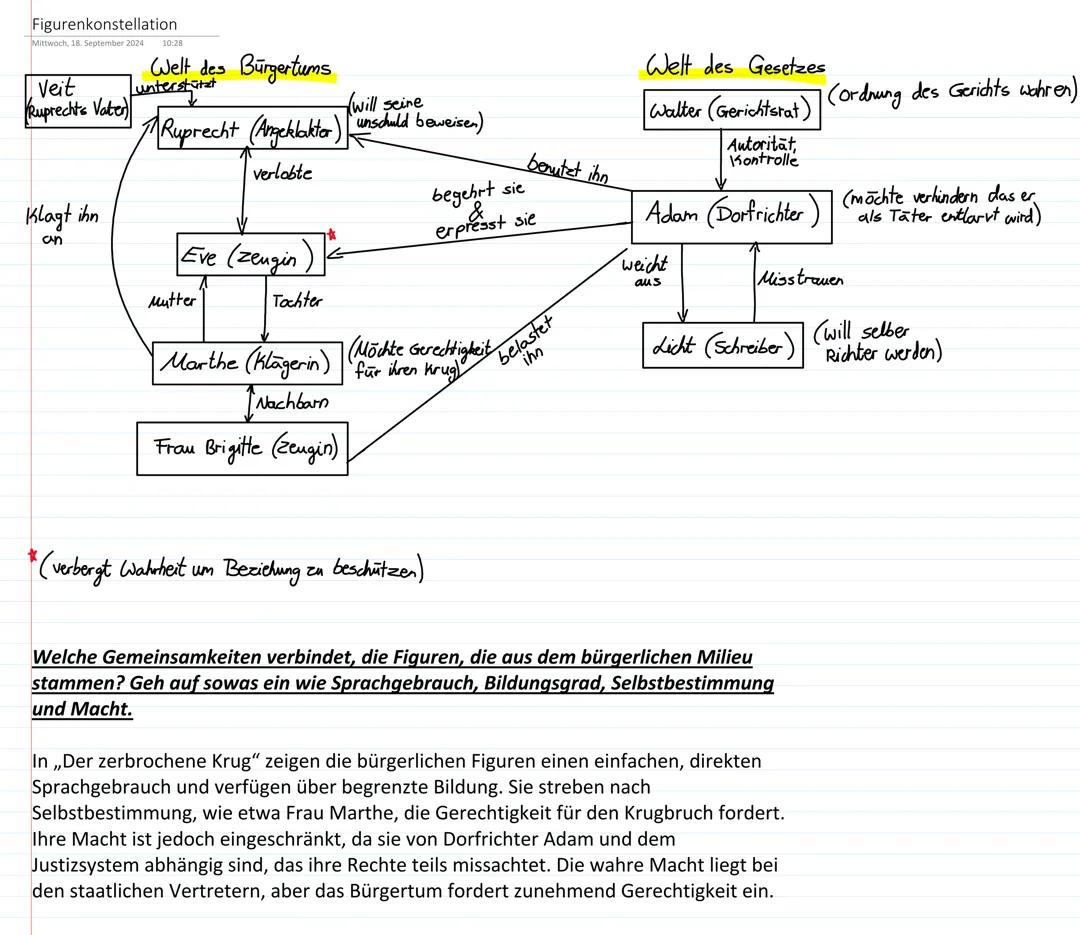 Figurenkonstellation
Mittwoch, 18. September 2024 10:28
Welt des Bürgertums
Welt des Gesetzes
Veit
(Ruprechts Vater)
unterstützt
Ruprecht (Angeklakter)
(will seine
unschuld beweisen)
Walter (Gerichtsrat)
(Ordnung des Gerichts wahren)
Autorität,
Kontrolle
verlobte
benutzt ihn
begehrt sie
&
erpresst sie
Adam (Dorfrichter)
(möchte verhindern das er
als Täter entlarvt wird)
Klagt ihn
an
Eve (Zeugin)
*
weicht
aus
Misstrauen
Mutter
Tochter
Licht (Schreiber)
(will selber
Richter werden)
Marthe (Klägerin)
(Möchte Gerechtigkeit
für ihren Krug)
belastet
ihn
Nachbarn
Frau Brigitte (Zeugin)
*(verbergt Wahrheit um Beziehung zu beschützen)
Welche Gemeinsamkeiten verbindet, die Figuren, die aus dem bürgerlichen Milieu
stammen? Geh auf sowas ein wie Sprachgebrauch, Bildungsgrad, Selbstbestimmung
und Macht.
In „Der zerbrochene Krug“ zeigen die bürgerlichen Figuren einen einfachen, direkten
Sprachgebrauch und verfügen über begrenzte Bildung. Sie streben nach
Selbstbestimmung, wie etwa Frau Marthe, die Gerechtigkeit für den Krugbruch fordert.
Ihre Macht ist jedoch eingeschränkt, da sie von Dorfrichter Adam und dem
Justizsystem abhängig sind, das ihre Rechte teils missachtet. Die wahre Macht liegt bei
den staatlichen Vertretern, aber das Bürgertum fordert zunehmend Gerechtigkeit ein.